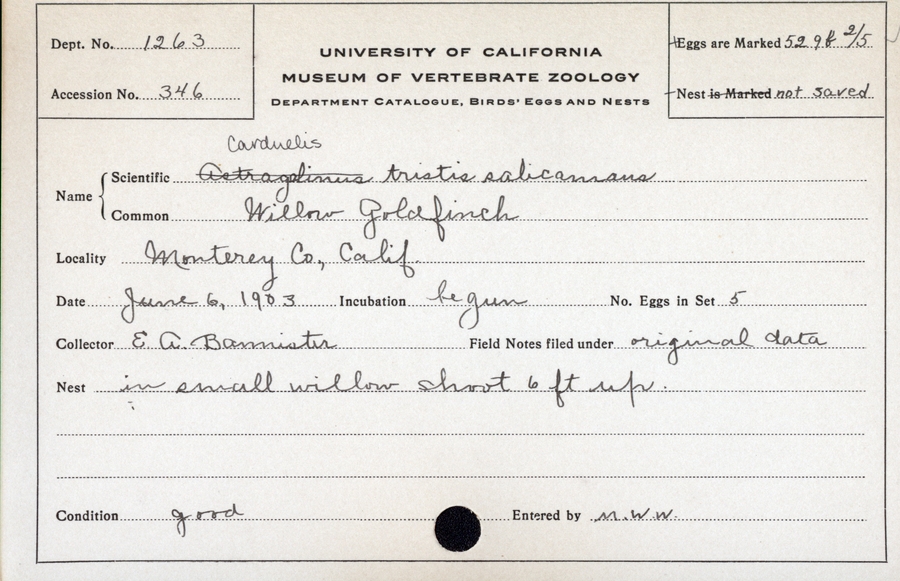 Dept. No. 1263
Accession No. 346
UNIVERSITY OF CALIFORNIA
MUSEUM OF VERTEBRATE ZOOLOGY
DEPARTMENT CATALOGUE, BIRDS' EGGS AND NESTS
Eggs are Marked 529f 2/5
Nest is Marked not saved
Carduelis
Name
Scientific Astragalinus tristis salicamans
Common Willow Goldfinch
Locality Monterey Co., Calif.
Date June 6, 1903 Incubation begun No. Eggs in Set 5
Collector E. A. Bannister Field Notes filed under original data
Nest in small willow shoot 6 ft up.
Condition good Entered by M.W.W.